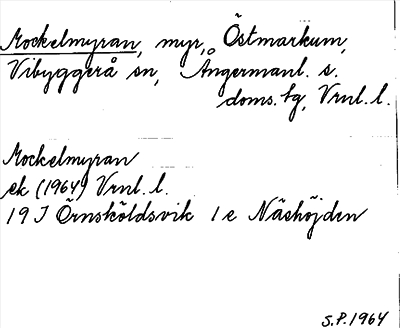 Mockelmyran, myr, Östmarkum,
Vibyggerå sn, Ångermanl. s.
doms. tg, Vrnl. l.
Mockelmyran
ek (1964) Vrnl. l.
19 J Örnsköldsvik 1 e Näshöjden
S.P. 1964